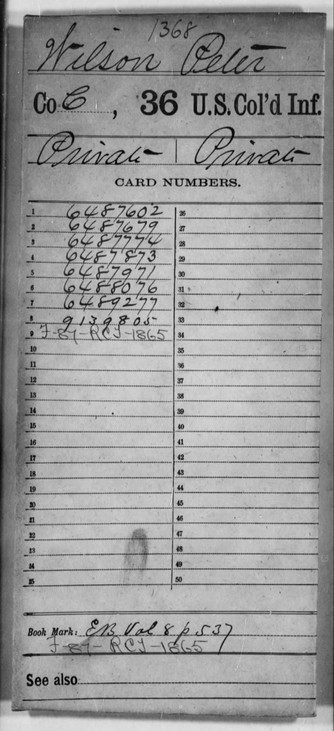 1368
Wilson Peter
Co C, 36 U.S. Col'd Inf.
Private | Private
CARD NUMBERS.
1 6487602 26
2 6487679 27
3 6487774 28
4 6487873 29
5 6487971 30
6 6488076 31
7 6489277 32
8 9139805 33
9 F-87-RCT-1865 34
10 35
11 36
12 37
13 38
14 39
15 40
16 41
17 42
18 43
19 44
20 45
21 46
22 47
23 48
24 49
25 50
Book Mark: EB Vol 8 p 537
F-87-RCT-1865
See also